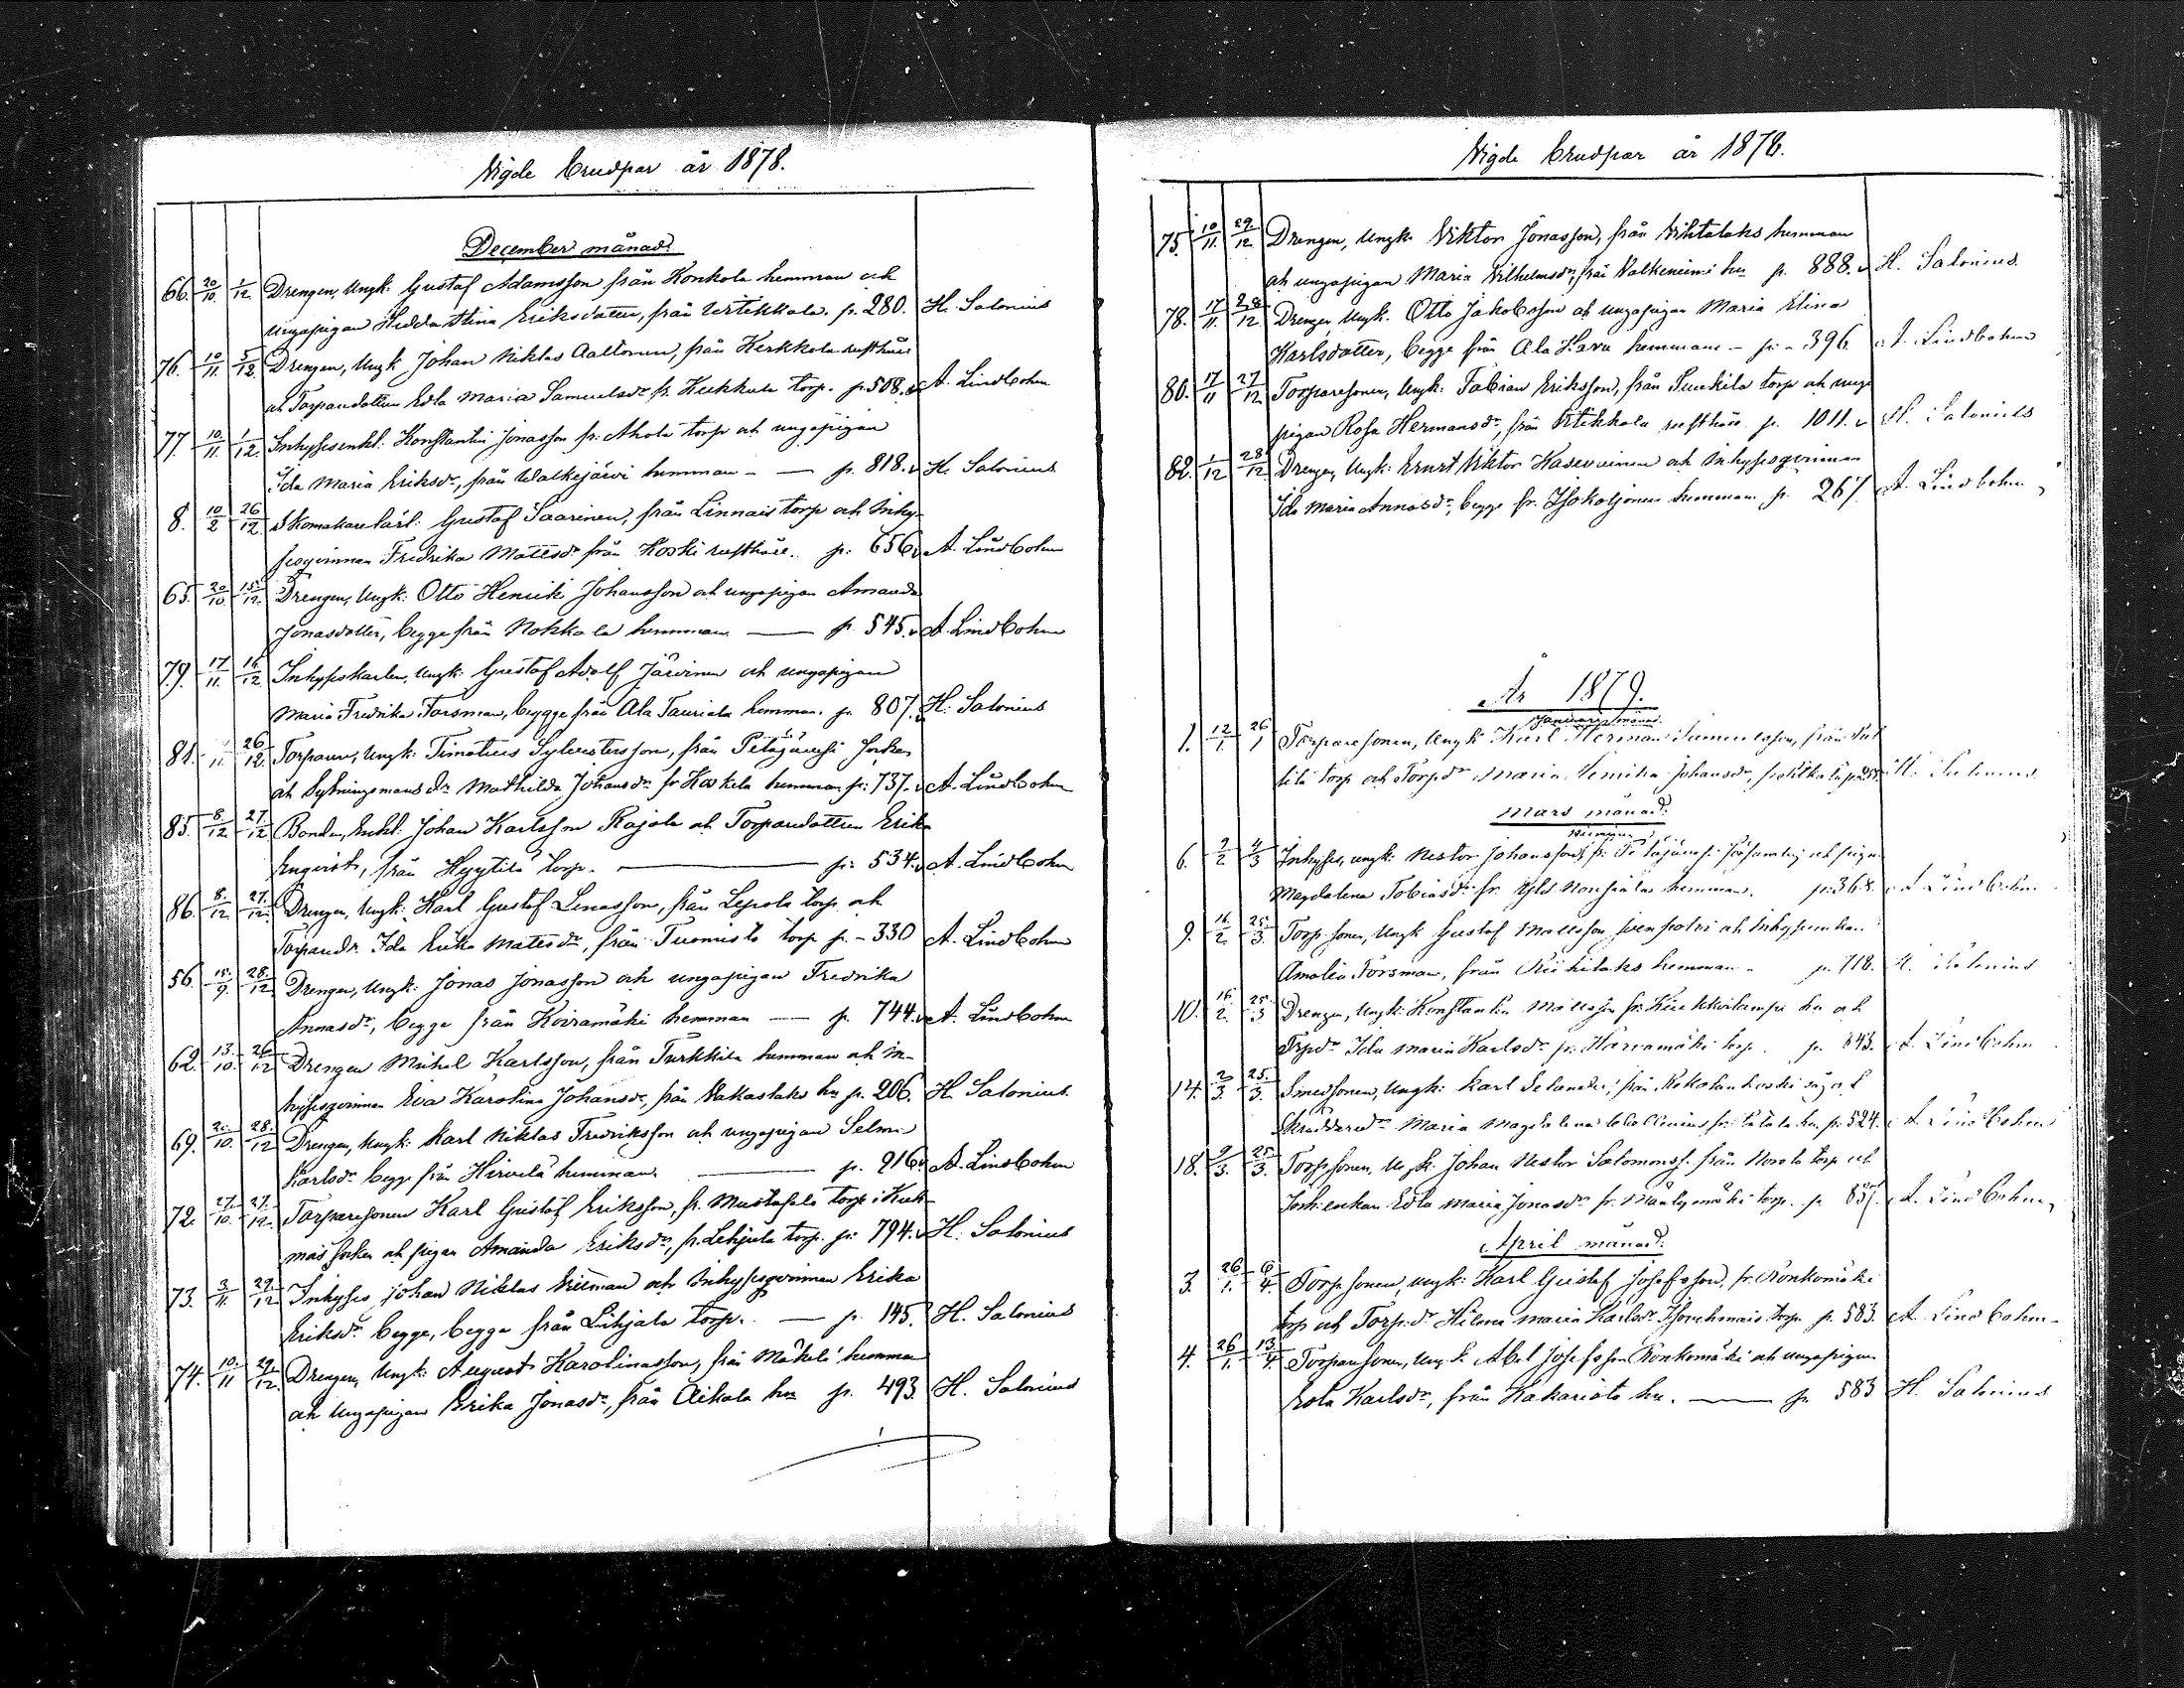 Vigde Brudpar år 1878.
December månad.
66. 20/10. 1/12. Drengen, Ungk: Gustaf Adamsson från Konkola hemman och
ungapigan Hedda Stina Eriksdotter, från Urtekkala. p. 280. H. Salonius
76. 10/11. 5/12. Drengen, Ungk Johan Niklas Aaltonen, från Kerkkola rusthåll
och Torparedottren Edla Maria Samuelsdr fr. Kukkula torp. p. 508. A. Lindbohm
77. 10/11. 1/12. Inhysesenkl: Konstantin Jonasson fr: Ahola torp och ungapigan
Ida Maria Eriksdr, från Walkejärvi hemman – — p. 818. H. Salonius
8. 10/2 26/12 Skomakarelärl: Gustaf Saarinen, från Linnais torp och Inhy-
sesqvinnan Fredrika Mattsdr från Koski rusthåll. p: 656 A. Lindbohm
65. 20/10. 15/12. Drengen, Ungk: Otto Henrik Johansson och ungapigan Amanda
Jonasdotter, begge från Nokkala hemman — p 545. A. Lindbohm
79. 17/11. 16/12. Inhyseskarlen, Ungk: Gustaf Adolf Järvinen och ungapigan
Maria Fredrika Forsman, beggge från Ala Tauriala hemman. p. 807. H. Salonius
81. 26/12. Torparen, Ungk: Timoteus Sylvestersson, från Petäjävesi socken
och Sytningsmansdr Mathilda Johansdr fr Koskela hemman p: 737. A. Lindbohm
85. 8/12 27/12 Bonden, Enkl: Johan Karlsson Rajala och Torparedottren Erika
Enqvist, från Hyytilä torp. — p: 534. A. Lindbohm
86. 8/12 27/12. Drengen, Ungk: Karl Gustaf Lenasson, från Lepola torp och
Torparedr. Ida Erika Mattsdr, från Tuomisto torp p. – 330 A. Lindbohm
56. 15/9. 28/12 Drengen, Ungk: Jonas Jonasson och ungapigan Fredrika
Annasdr, begge från Koiramäki hemman — p. 744. A. Lindbohm
62. 13/10. 26/12 Drengen Mikel Karlsson, från Turkkila hemman och In-
hysesqvinnan Eva Karolina Johansdr, från Vakaslaks hn p. 206. H. Salonius.
69. 20/10. 28/12 Drengen, Ungk: Karl Niklas Fredriksson och ungapigan Selma
Karlsdr begge från Hirvelä hemman. — p. 916. A. Lindbohm
72. 27/10. 27/12. Torparesonen Karl Gustaf Eriksson, fr. Mustasalo torp i Kuh-
mois socken och pigan Amanda Eriksdr, fr. Lihjala torp. p: 794. H. Salonius
73. 3/11. 29/12 Inhyses Johan Niklas och Inhysesqvinnan Erika
Eriksdr begge, begge från Lihjala torp. — p. 145. H. Salonius
74. 10/11 29/12. Drengen, Ungk: August Karolinasson, från Mäkelä hemman
och Ungapigan Erika Jonasdr, från Aikala hn p. 493. H. Salonius
Vigde Brudpar år 1878.
75. 10/11. 29/12. Drengen, Ungk. Viktor Jonasson, från Vihtalaks hemman
och ungapigan Maria Vilhelmsdr, från Valkeniemi hn p. 888. H. Salonius.
78. 17/11. 28/12 Drengen Ungk. Otto Jakobsson och ungapigan Maria Elina
Karlsdotter, begge från Ala Havu hemman – p: – 396. A. Lindbohm
80. 17/11 27/12. Torparesonen, Ungk: Fabian Eriksson, från Sunkila torp och unga
pigan Rosa Hermansdr, från Urtekkala rusthåll p. 1011. H. Salonius
82. 1/12 28/12. Drengen, Ungk: Ernst Viktor och Inhysesqvinnan
Ida Maria Annasdr, begge fr. hemman p. 267 A. Lindbohm
År 1879.
Januari månad.
1. 12/1. 26/1 Torparesonen, Ungk Karl Herman Samuelsson, från
torp och Torpdr Maria Johansdr, H. Salonius
Mars månad:
6. 2/2 4/3 Inhyses, ungk: Nestor Johansson, fr: Petäjävesi och pigan
Magdalena Tobiasdr fr. hemman. p: 368. A. Lindbohm
9. 16/2. 25/3. Torp. sonen, Ungk Gustaf Mattsson och Inhysesenkan
Amalia Forsman, från hemman – p. 718. H. Salonius
10. 16/2. 25/3 Drengen, Ungk: Konstantin Mattsson fr: hn och
Trpdr Ida Maria Karlsdr fr: Harvamäki torp. p. 843. A. Lindbohm
14. 2/3. 25/3. Smedsonen, Ungk: Karl Selander, från såg och
Skräddaredr Maria Magdalena fr: hn. p. 524. A. Lindbohm
18. 9/3. 25/3. Torpsonen, Ungk. Johan Nestor Salomonss. från Norola torp och
Inh: enkan Edla Maria Jonasdr fr. Mäntymäki torp. p 857. A. Lindbohm,
April månad:
3. 26/1. 6/4. Torp. sonen, ungk: Karl Gustaf Josefsson, fr. Ronkomäki
torp och Torp.dr Hilma Maria Karlsdr torp. p. 583. A. Lindbohm
4. 26/1. 13/4. Torparesonen, Ung.k. Abel Josefsson Ronkomäki och ungapigan
Edla Karlsdr, från Hakaristo hn. — p. 583 H. Salonius